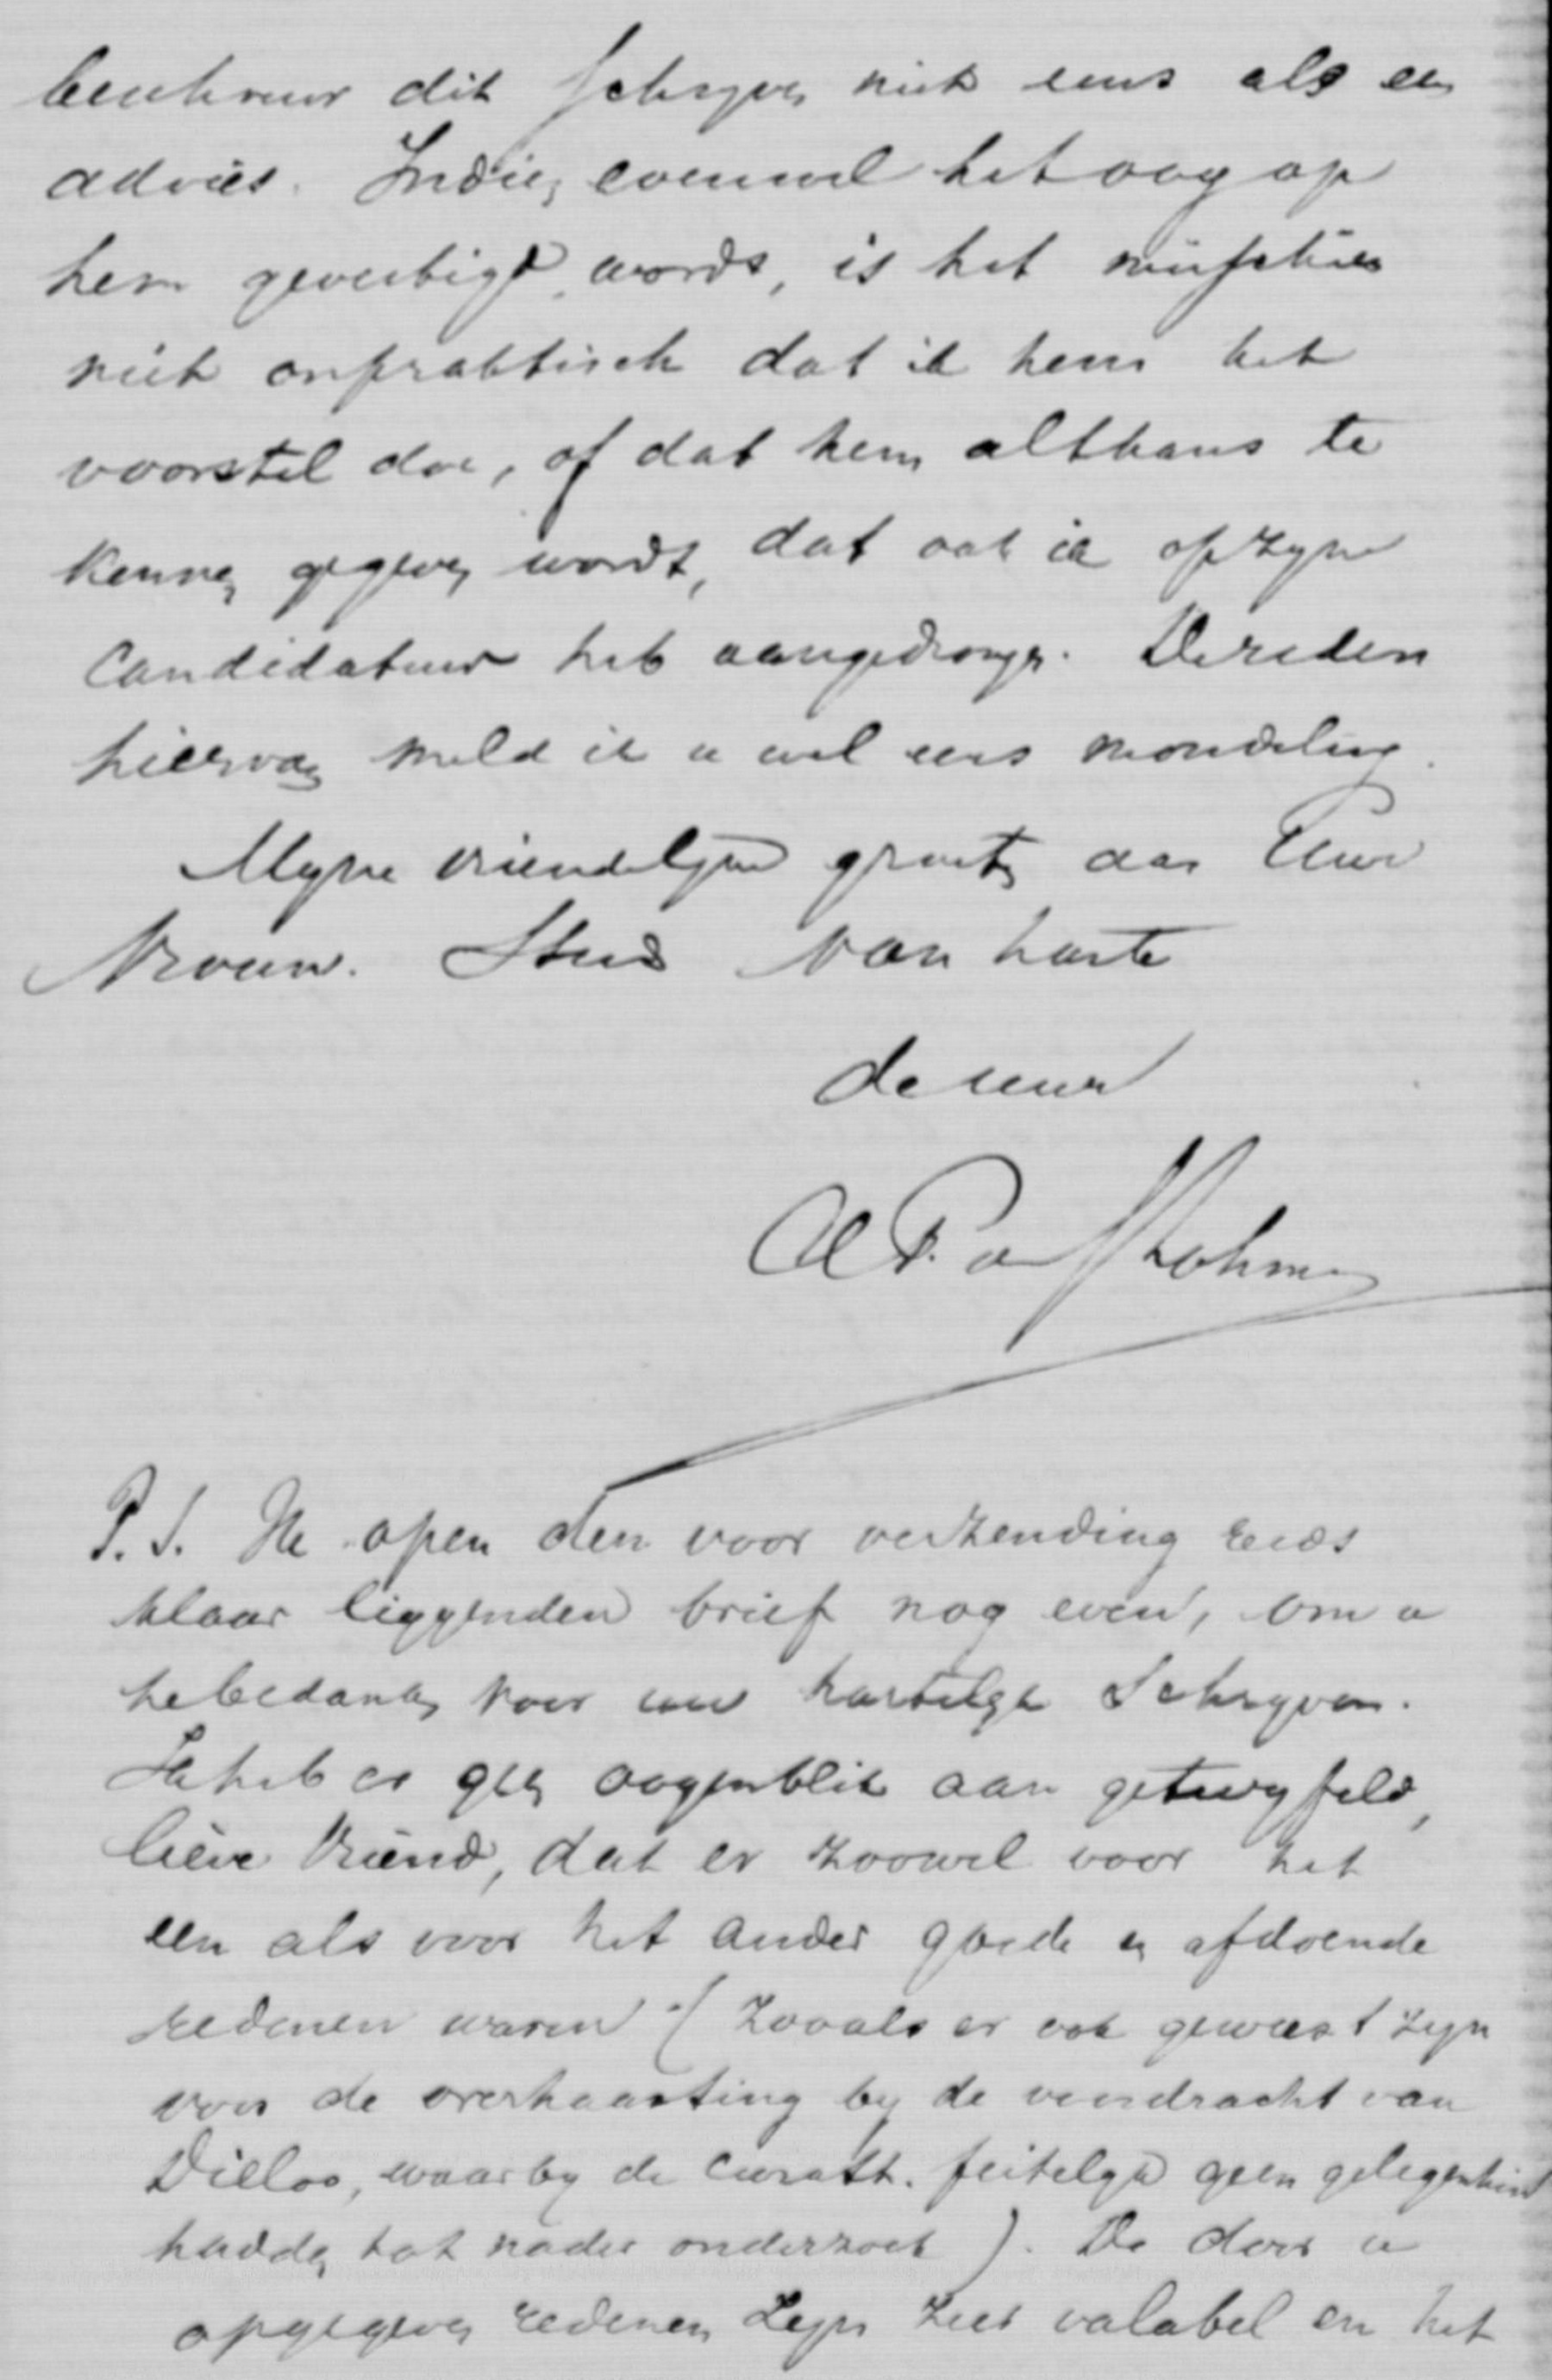 beschouw dit schryven niet eens als een
advies. Indien evenwel het oog op
hem gevestigd wordt, is het misschien
niet onpraktisch dat ik hem het
voorstel doe, of dat hem althans te
kennen gegeven wordt, dat ook ik op zyne
Candidatuur heb aangedrongen. De reden
hiervan meld ik u wel eens mondeling.
Myne vriendelyke groeten aan Uwe
Vrouw. Steeds van harte
de uwe
AF de S Lohman
P.S. Ik open den voor verzending reeds
klaar liggenden brief nog even, om u
te bedanken voor uw hartelyk Schryven.
Ik heb er geen oogenblik aan getwyfeld,
lieve Vriend, dat er zoowel voor het
een als voor het ander goede en afdoende
redenen waren (zooals er ook geweest zyn
voor de overhaasting by de voordracht van
Dilloo, waarby de curatt. feitelyk geen gelegenheid
hadden tot nader onderzoek). De door u
opgegeven redenen zyn zeer valabel en het